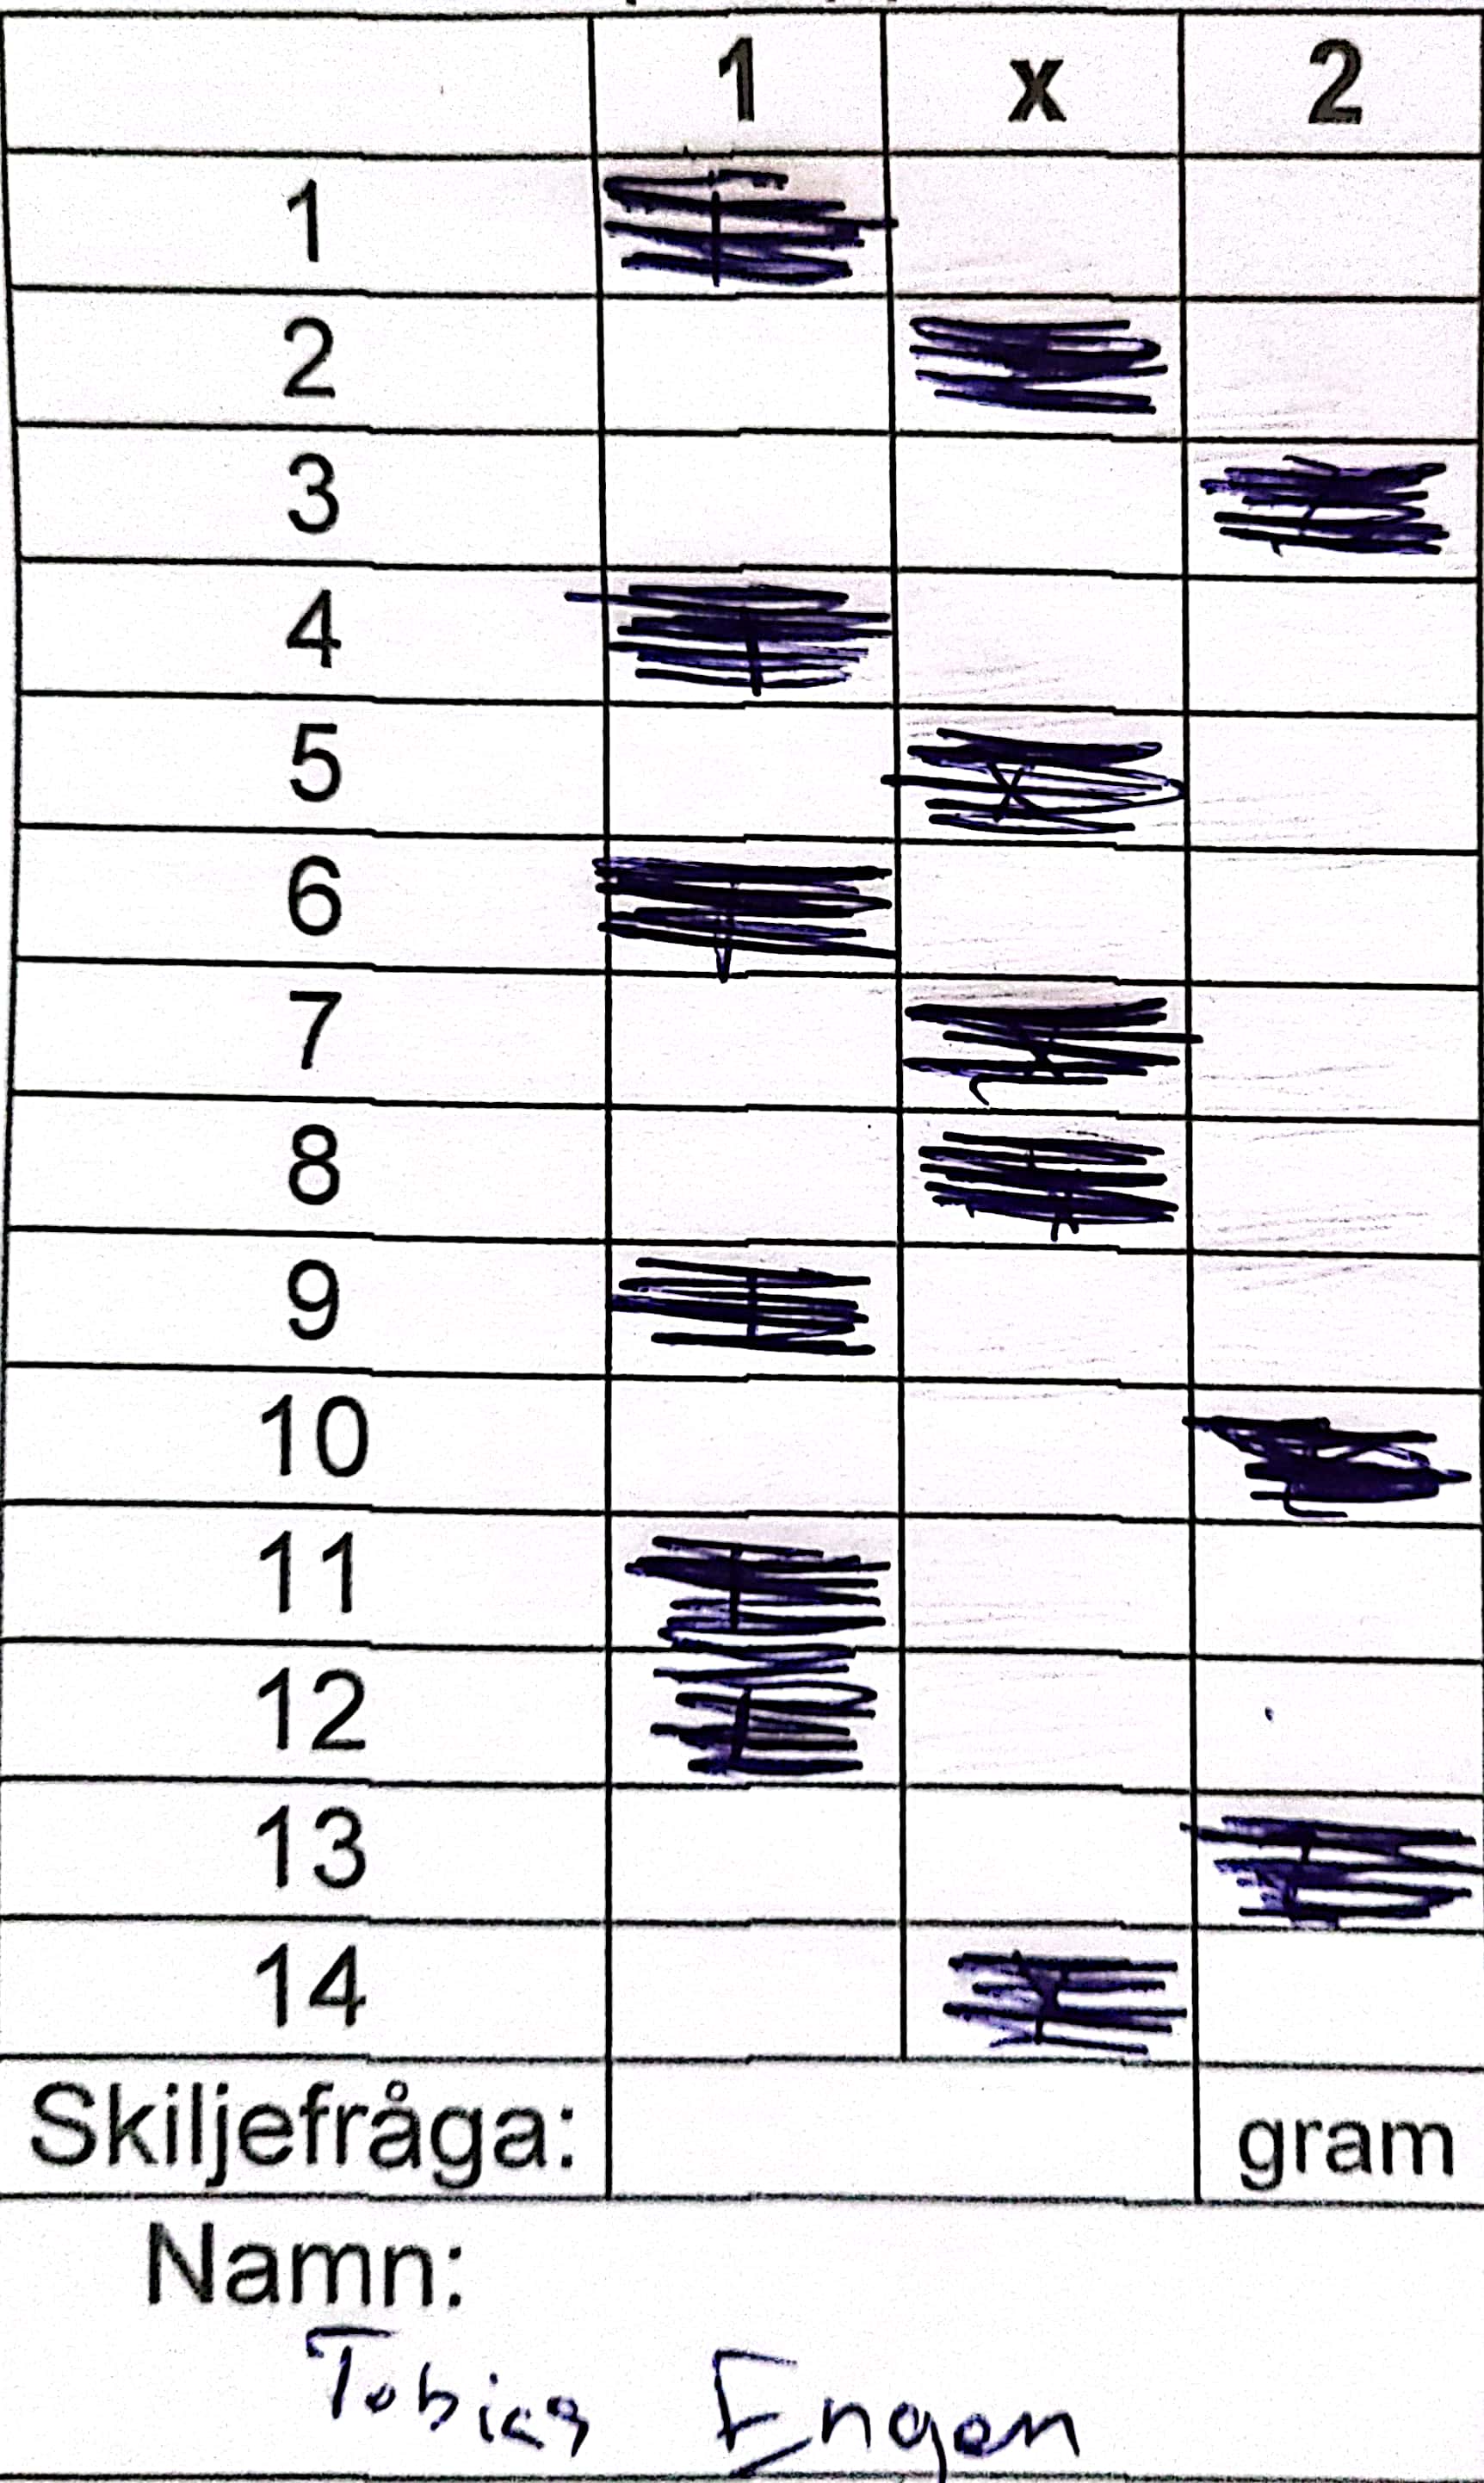 1 x 2
1
2
3
4
5
6
7
8
9
10
11
12
13
14
Skiljefråga: gram
Namn:
Tobias Engen